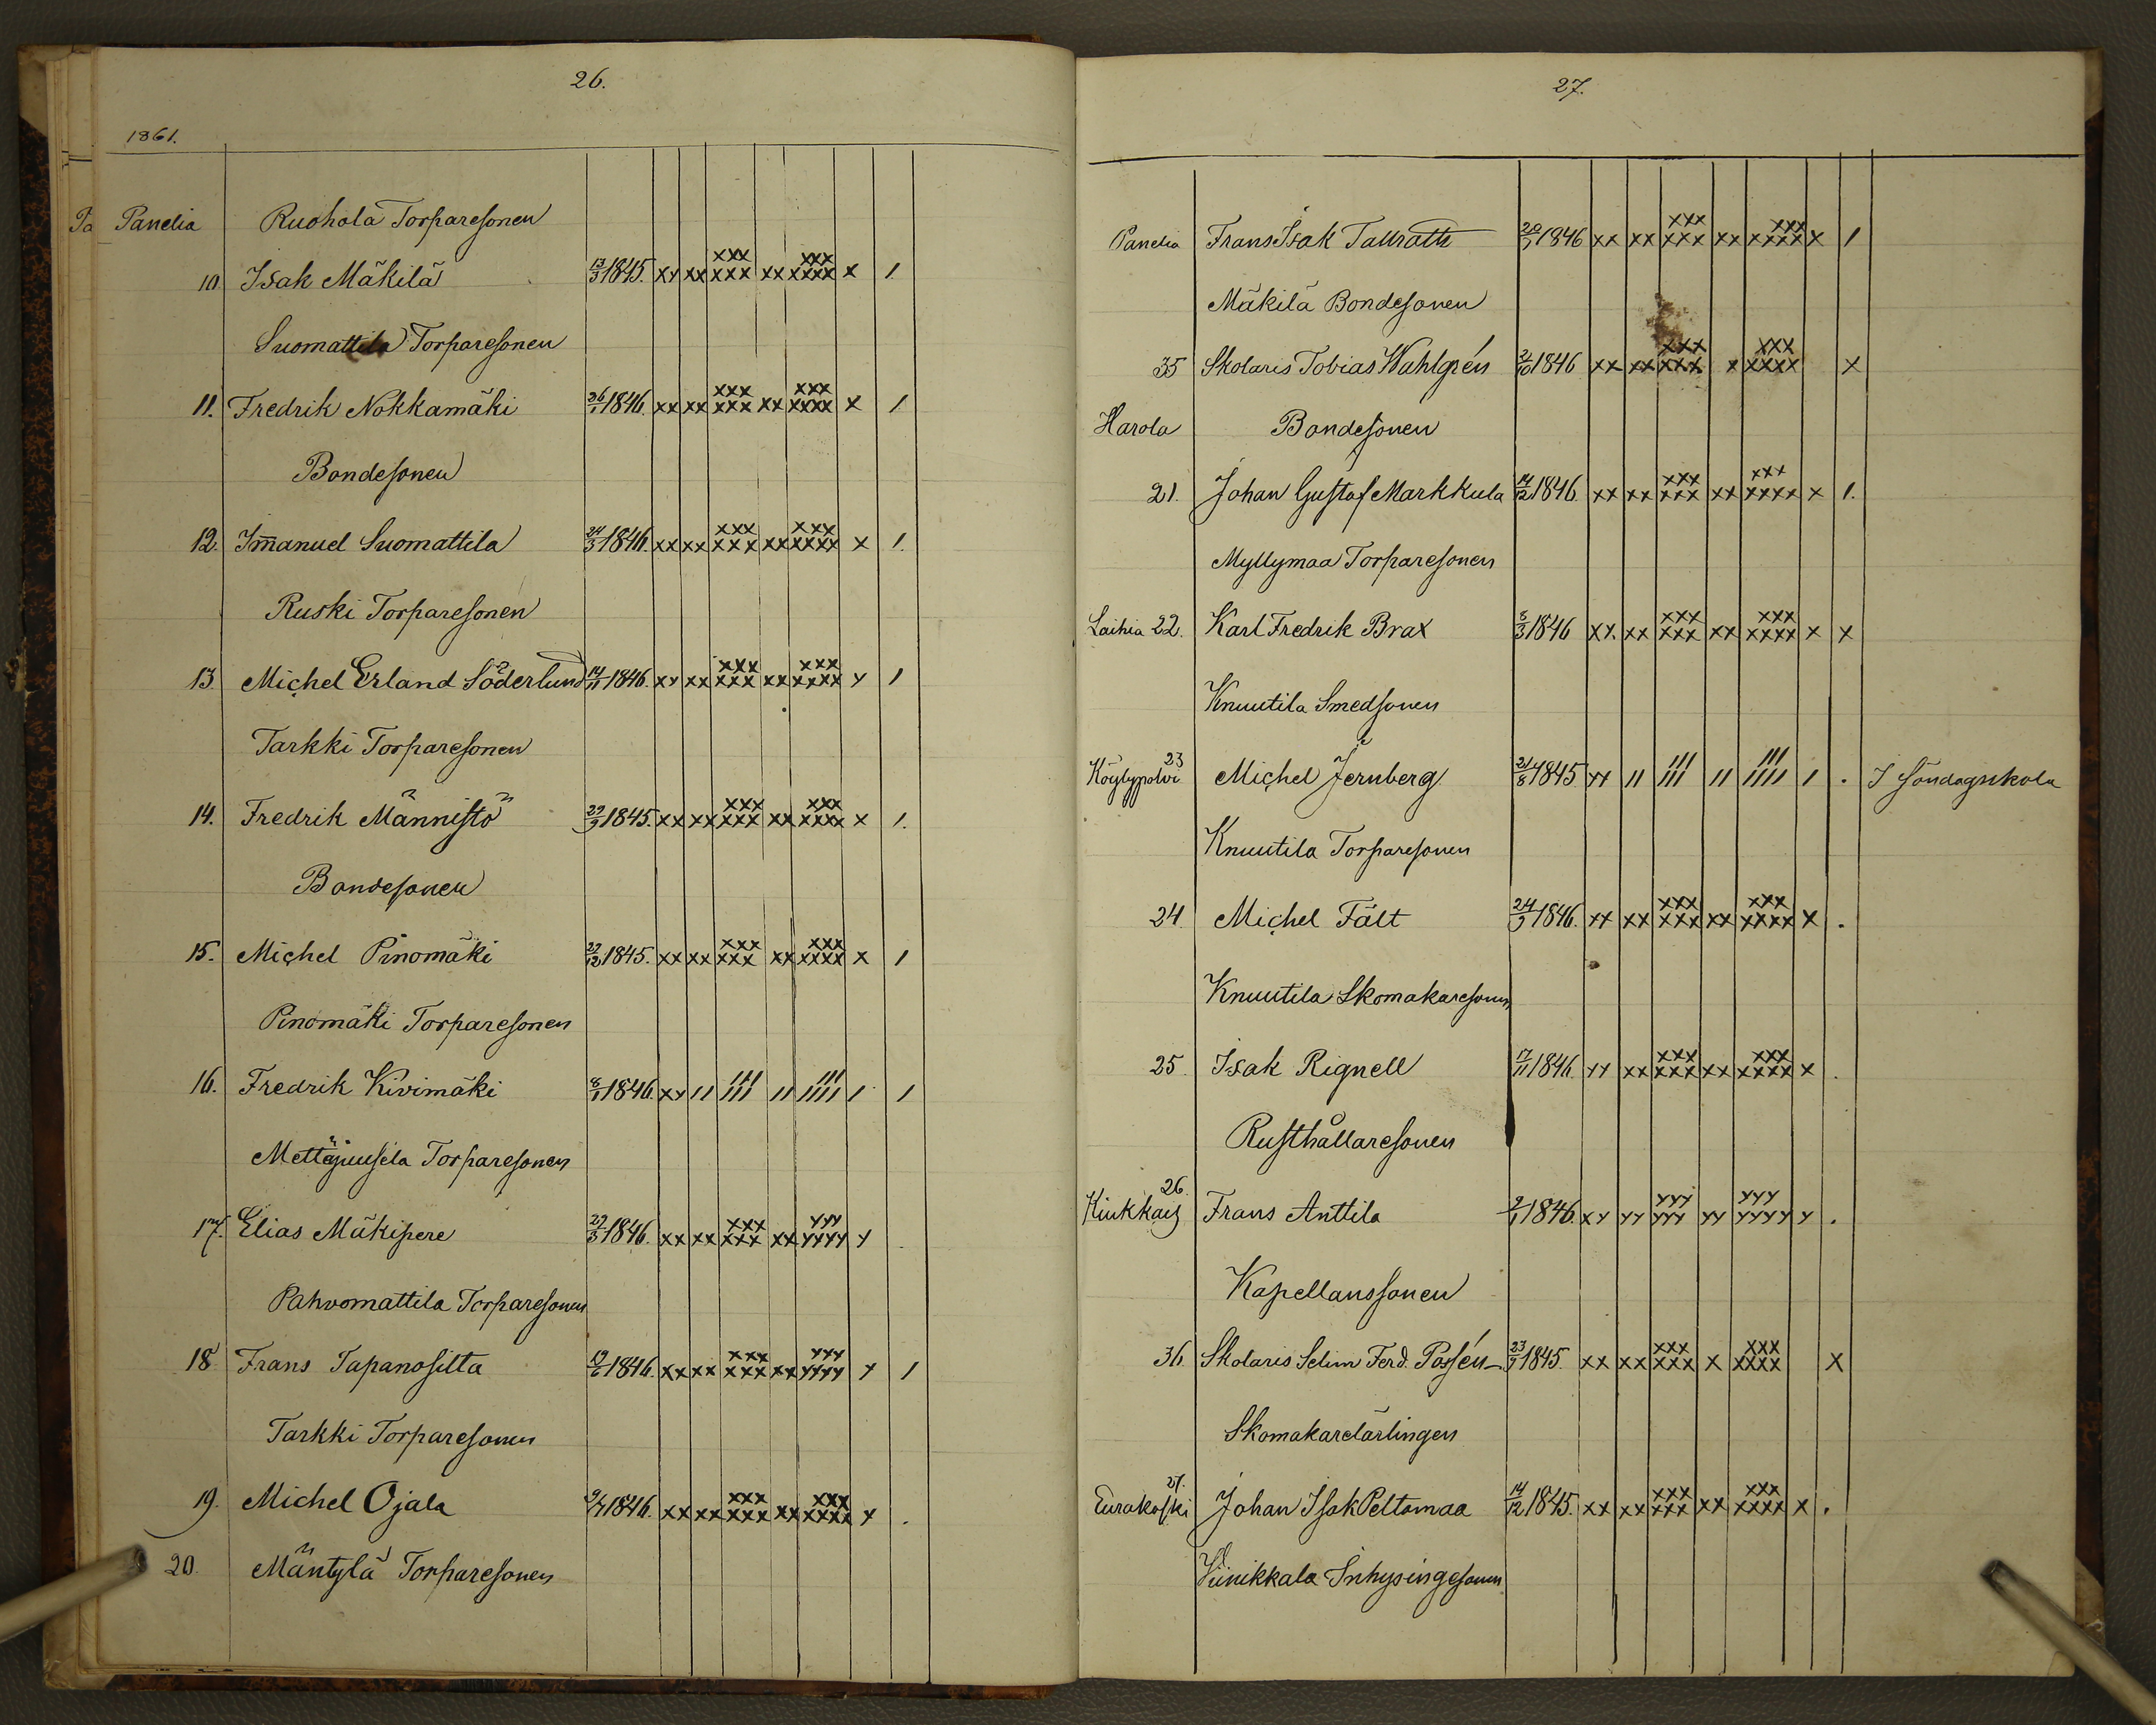 26.
1861.
Panelia Ruohola Torparesonen
10 Isak Mäkilä 13/3 1845. xx xx xxx xxx xx xxx xxxx x 1
Suomattila Torparesonen
11. Fredrik Nokkamäki 26/1 1846. xx xx xxx xxx xx xxx xxxx x 1
Bondesonen
12. Im̄anuel Suomattila 24/3 1846. xx xx xxx xxx xx xxx xxxx x 1.
Ruski Torparesonen
13. Michel Erland Söderlund 14/11 1846. xx xx xxx xxx xx xxx xxxx x 1
Tarkki Torparesonen
14. Fredrik Männistö 29/9 1845. xx xx xxx xxx xx xxx xxxx x 1.
Bondesonen
15. Michel Pinomäki 22/12 1845. xx xx xxx xxx xx xxx xxxx x 1
Pinomäki Torparesonen
16. Fredrik Kivimäki 8/1 1846. xx 11 111 111 11 111 1111 1 1
Mettäjuusela Torparesonen
17. Elias Mäkipere 29/3 1846. xx xx xxx xxx xx xxx xxxx x
Pahvomattila Torparesonen
18 Frans Tapanosilta 19/6 1846. xx xx xxx xxx xx xxx xxxx x 1
Tarkki Torparesonen
19. Michel Ojala 1846. xx xx xxx xxx xx xxx xxxx x .
20. Mäntylä Torparesonen
27.
Panelia Frans Isak Tallrath 20/1 1846 xx xx xxx xxx xx xxx xxxx x 1
Mäkilä Bondesonen
35 Skolaris Tobias Wahlgrén 2/10 1846 xx xx xxx xxx x xxx xxxx x
Harola Bondesonen
21. Johan Gustaf Markkula 14/12 1846. xx xx xxx xxx xx xxx xxxx x 1.
Myllymaa Torparesonen
Laihia 22. Karl Fredrik Brax 8/3 1846 xx. xx xxx xxx xx xxx xxxx x x
Knuutila Smedsonen
23 Köylypolvi Michel Jernberg 21/8 1845 xx 11 111 111 11 111 1111 1 . I söndagsskola
Knuutila Torparesonen
24. Michel Fält 24/9 1846. xx xx xxx xxx xx xxx xxxx x .
Knuutila Skomakaresonen
25. Isak Rignell 17/11 1846. xx xx xxx xxx xx xxx xxxx x .
Rusthållaresonen
26. Kiukkais Frans Anttila 9/1 1846. xx xx xxx xxx xx xxx xxxx x .
Kapellanssonen
36. Skolaris Selim Ferd. Possén 23/9 1845. xx xx xxx xxx x xxx xxxx x
Skomakarelärlingen
27. Eurakoski Johan Isak Peltomaa 14/12 1845. xx xx xxx xxx xx xxx xxxx x .
Viinikkala Inhysingesonen